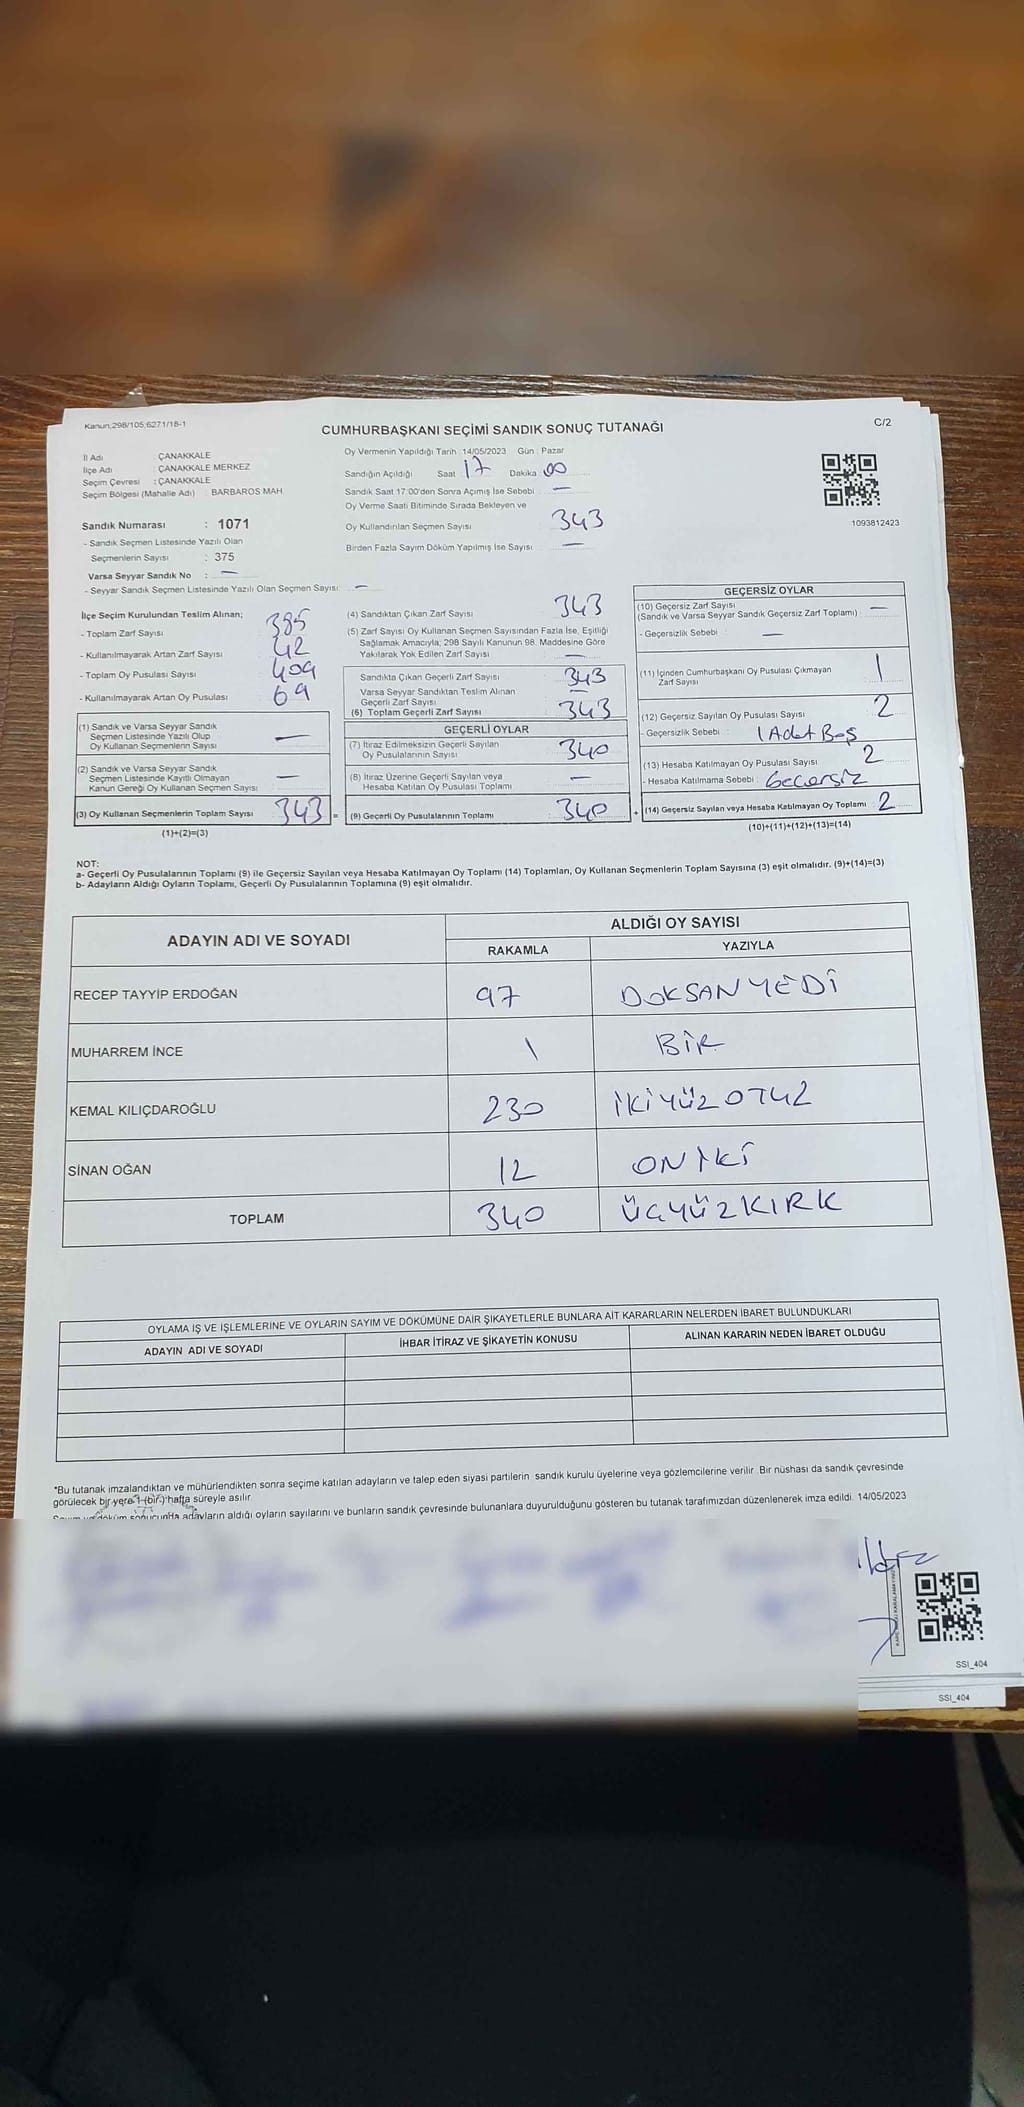 Kanun;298/105;6271/18-1
CUMHURBAŞKANI SEÇİMİ SANDIK SONUÇ TUTANAĞI
C/2
İl Adı ÇANAKKALE
İlçe Adı : ÇANAKKALE MERKEZ
Seçim Çevresi : ÇANAKKALE
Seçim Bölgesi (Mahalle Adı) : BARBAROS MAH.
Sandık Numarası : 1071
- Sandık Seçmen Listesinde Yazılı Olan
Seçmenlerin Sayısı : 375
Varsa Seyyar Sandık No : —
- Seyyar Sandık Seçmen Listesinde Yazılı Olan Seçmen Sayısı: —
Oy Vermenin Yapıldığı Tarih : 14/05/2023 Gün : Pazar
Sandığın Açıldığı Saat 17 Dakika 00
Sandık Saat 17:00'den Sonra Açımış İse Sebebi : —
Oy Verme Saati Bitiminde Sırada Bekleyen ve
Oy Kullandırılan Seçmen Sayısı 343
Birden Fazla Sayım Döküm Yapılmış İse Sayısı : —
1093812423
İlçe Seçim Kurulundan Teslim Alınan;
- Toplam Zarf Sayısı 385
- Kullanılmayarak Artan Zarf Sayısı 42
- Toplam Oy Pusulası Sayısı 409
- Kullanılmayarak Artan Oy Pusulası 69
(1) Sandık ve Varsa Seyyar Sandık
Seçmen Listesinde Yazılı Olup
Oy Kullanan Seçmenlerin Sayısı —
(2) Sandık ve Varsa Seyyar Sandık
Seçmen Listesinde Kayıtlı Olmayan
Kanun Gereği Oy Kullanan Seçmen Sayısı —
(3) Oy Kullanan Seçmenlerin Toplam Sayısı 343 =
(1)+(2)=(3)
(4) Sandıktan Çıkan Zarf Sayısı 343
(5) Zarf Sayısı Oy Kullanan Seçmen Sayısından Fazla İse, Eşitliği
Sağlamak Amacıyla; 298 Sayılı Kanunun 98. Maddesine Göre
Yakılarak Yok Edilen Zarf Sayısı —
Sandıkta Çıkan Geçerli Zarf Sayısı 343
Varsa Seyyar Sandıktan Teslim Alınan
Geçerli Zarf Sayısı —
(6) Toplam Geçerli Zarf Sayısı 343
GEÇERLİ OYLAR
(7) İtiraz Edilmeksizin Geçerli Sayılan
Oy Pusulalarının Sayısı 340
(8) İtiraz Üzerine Geçerli Sayılan veya
Hesaba Katılan Oy Pusulası Toplamı —
(9) Geçerli Oy Pusulalarının Toplamı 340 +
GEÇERSİZ OYLAR
(10) Geçersiz Zarf Sayısı
(Sandık ve Varsa Seyyar Sandık Geçersiz Zarf Toplamı) —
- Geçersizlik Sebebi : —
(11) İçinden Cumhurbaşkanı Oy Pusulası Çıkmayan
Zarf Sayısı 1
(12) Geçersiz Sayılan Oy Pusulası Sayısı 2
- Geçersizlik Sebebi : 1 Adet Boş
(13) Hesaba Katılmayan Oy Pusulası Sayısı 2
- Hesaba Katılmama Sebebi : Geçersiz
(14) Geçersiz Sayılan veya Hesaba Katılmayan Oy Toplamı 2
(10)+(11)+(12)+(13)=(14)
NOT:
a- Geçerli Oy Pusulalarının Toplamı (9) ile Geçersiz Sayılan veya Hesaba Katılmayan Oy Toplamı (14) Toplamları, Oy Kullanan Seçmenlerin Toplam Sayısına (3) eşit olmalıdır. (9)+(14)=(3)
b- Adayların Aldığı Oyların Toplamı, Geçerli Oy Pusulalarının Toplamına (9) eşit olmalıdır.
ADAYIN ADI VE SOYADI
ALDIĞI OY SAYISI
RAKAMLA YAZIYLA
RECEP TAYYİP ERDOĞAN 97 DOKSANYEDİ
MUHARREM İNCE 1 BİR
KEMAL KILIÇDAROĞLU 230 İKİYÜZOTUZ
SİNAN OĞAN 12 ONİKİ
TOPLAM 340 ÜÇYÜZKIRK
OYLAMA İŞ VE İŞLEMLERİNE VE OYLARIN SAYIM VE DÖKÜMÜNE DAİR ŞİKAYETLERLE BUNLARA AİT KARARLARIN NELERDEN İBARET BULUNDUKLARI
ADAYIN ADI VE SOYADI İHBAR İTİRAZ VE ŞİKAYETİN KONUSU ALINAN KARARIN NEDEN İBARET OLDUĞU
*Bu tutanak imzalandıktan ve mühürlendikten sonra seçime katılan adayların ve talep eden siyasi partilerin sandık kurulu üyelerine veya gözlemcilerine verilir. Bir nüshası da sandık çevresinde
görülecek bir yere 1 (bir) hafta süreyle asılır.
Sayım ve döküm sonucunda adayların aldığı oyların sayılarını ve bunların sandık çevresinde bulunanlara duyurulduğunu gösteren bu tutanak tarafımızdan düzenlenerek imza edildi. 14/05/2023
SSI_404
SSI_404